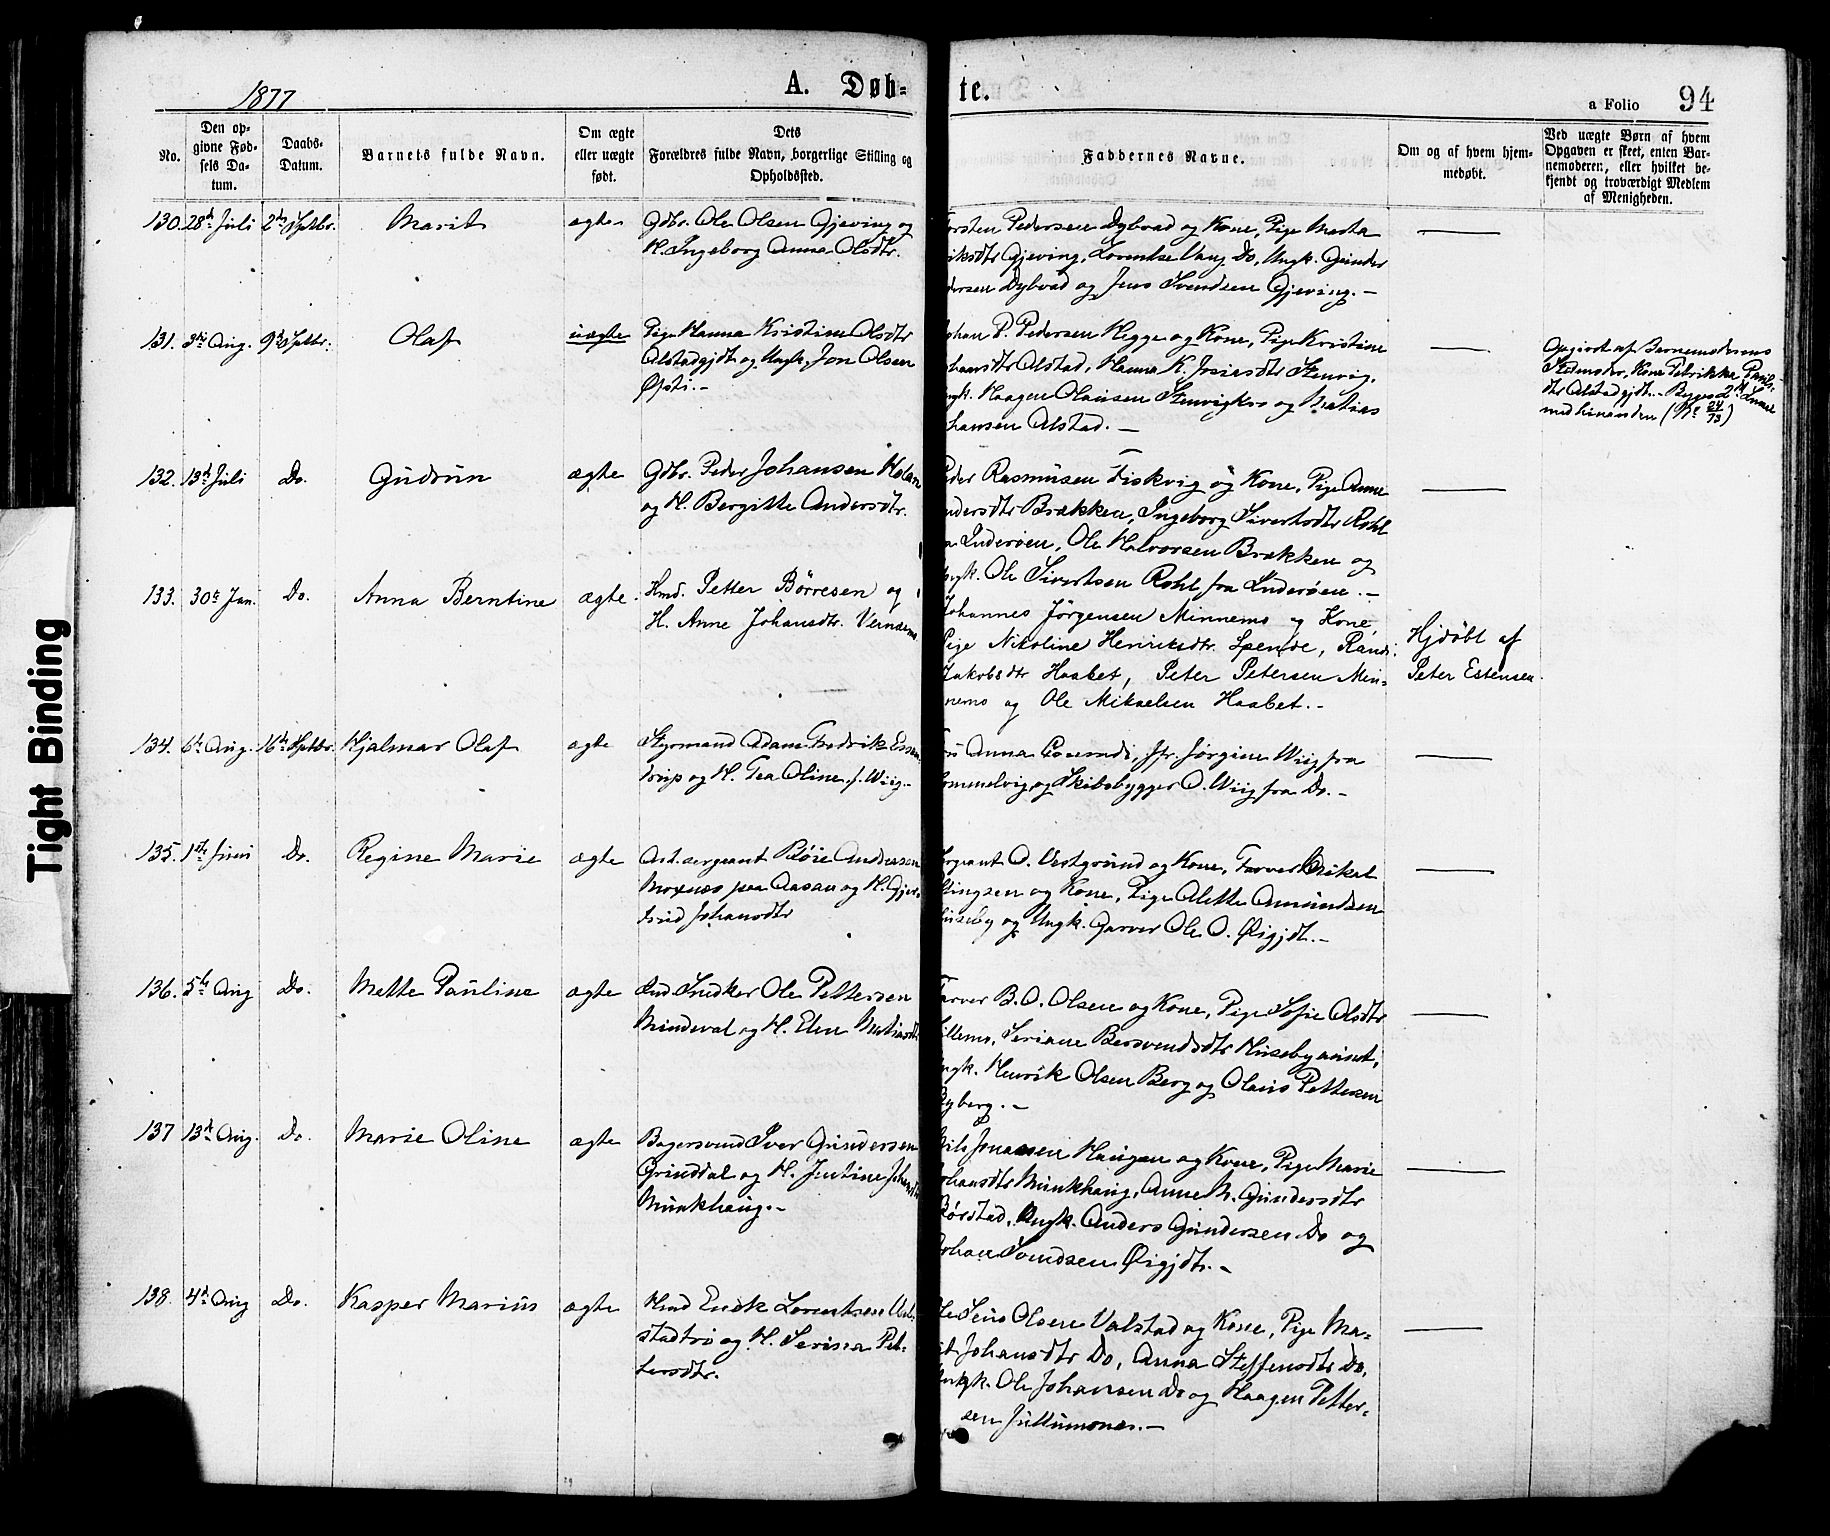 1877
A. Døb-
te.
a Folio 94
No.
Den op-
givne Fød-
sels Da-
tum.
Daabs-
Datum.
Barnets fulde Navn.
Om ægte
eller uægte
født.
Dets
Forældres fulde Navn, borgerlige Stilling og
Opholdssted.
Faddernes Navne.
Om og af hvem hjem-
medøbt.
Ved uægte Børn af hvem
Opgaven er skeet, enten Bar-
nemoderen, eller hvilket be-
kjendt og troværdigt Medlem
af Menigheden.
130. 28de Juli 2den Septbr. Marit ægte
Gdbr. Ole Olsen Gjeving og
H. Ingeborg Anna Olsdtr.
Torsten Pedersen Dybvad og Kone, Pige Marta
riksdtr Gjeving, Lorentse Vang Do, Ungk. Gunder
dersen Dybvad og Jens Svendsen Gjeving.-
131. 3die Aug. 9de Septbr. Olaf uægte
Pige Hanna Kristine Olsdtr
Alstadgjdt. og Ungk. Jon Olsen
Øfsti.-
Johan P. Pedersen Hegge og Kone, Pige Kristine
ohansdtr Alstad, Hanna K. Josiasdtr Stenvig,
ngk. Haagen Olausen Stenvig og
hansen Alstad.-
Opgivet af Barnemoderens
Stedmoder, Kone Petrikka Pauls-
dtr Alstadgjdt.- Begges 2det Leierm.
med hinanden (No 24/73)
132. 13de Juli Do. Gudrun ægte
Gdbr. Peder Johansen Holan
og H. Bergitte Andersdtr.
eder Rasmusen Fiskvig og Kone, Pige Anne
ndersdtr Brækken, Ingeborg Sivertsdtr Rohl
a Inderøen, Ole Halvorsen Brækken og
ngk. Ole Sivertsen Rohl fra Inderøen.-
133. 30te Jan. Do. Anna Berntine ægte.
Hmd. Petter Börresen og
H. Anne Johansdtr. Vernæsmo
Johannes Jörgensen Minnemo og Kone,
Pige Nikoline Henriksdtr. Spende, Randi
Jakobsdtr Haabet, Peter Petersen Min-
nemo og Ole Mikaelsen Haabet.-
Hjdöbt af
Peter Estensen.
134. 6te Aug. 16de Septbr. Hjalmar Olaf ægte
Styrmand Adam Fredrik Essen-
trup og H. Tea Oline f. Wiig.-
Fru Anna, Jfr. Jørgine Wiig fra
ommelvig, og Skibsbygger O. Wiig fra Do.-
135. 1ste Juni Do. Regine Marie ægte
Ast.sergeant Böie Andersen
Moxnæs paa Aasan og H. Gjer-
trud Johansdtr
ergeant O. Vestgrund og Kone, Farver Mikal
llingsen og Kone, Pige Alette Amundsen
useby og Ungk. Garver Ole O. Øigjdt.-
136. 5te Aug Do. Mette Pauline ægte
Ind. Snedker Ole Pettersen
Mindeval og H. Elen Matiasdtr
Farver B. O. Olsen og Kone, Pige Sofie Olsdtr
illemo, Seriane Bersvendsdtr Husebyauset,
ngk. Henrik Olsen Berg og Olaus Pettersen
Byberg.-
137 13de Aug. Do. Marie Oline ægte
Bagersvend Iver Gundersen
Grinddal og H. Justine Johansdtr
Munkhaug.-
ils Jonassen Haugen og Kone, Pige Marie
ohansdtr Munkhaug, Anne M. Gundersdtr
Börstad, Ungk. Anders Gundersen Do og
Johan Svendsen Øigjdt.-
138. 4de Aug Do. Kasper Marius ægte
Hmd Enok Lorentsen Val-
stadtrø og H. Serina Pet-
tersdtr.
le Jens Olsen Valstad og Kone, Pige Ma-
it Johansdtr Do, Anna Steffensdtr Do,
Ungk. Ole Johansen Do og Haagen Petter-
sen Jullumones.-
Tight Binding